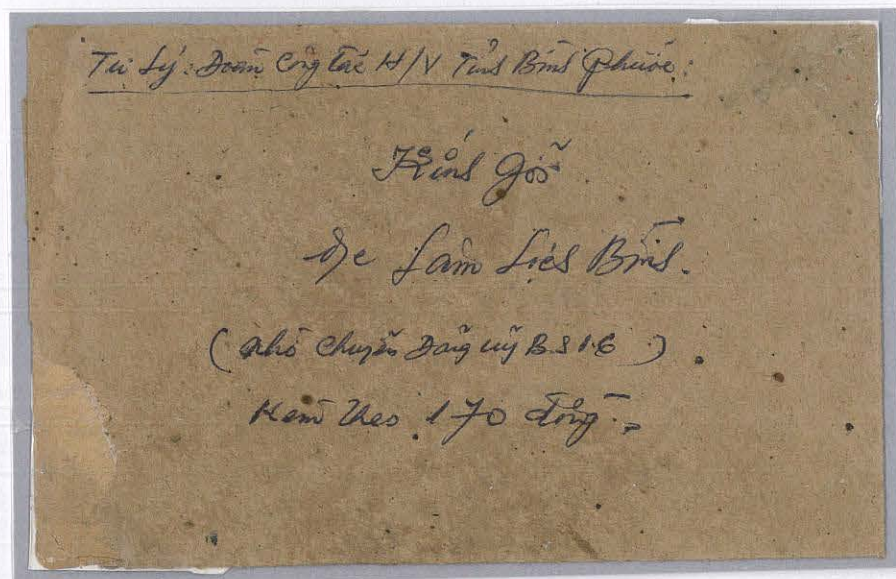 Tư Lý: Đoàn Công tác H/V Tỉnh Bình Phước:
Kính gởi
Đ/c Lâm Liên Bình.
(nhờ chuyển Đảng uỷ B.S.16)
Kèm theo 170 đồng.